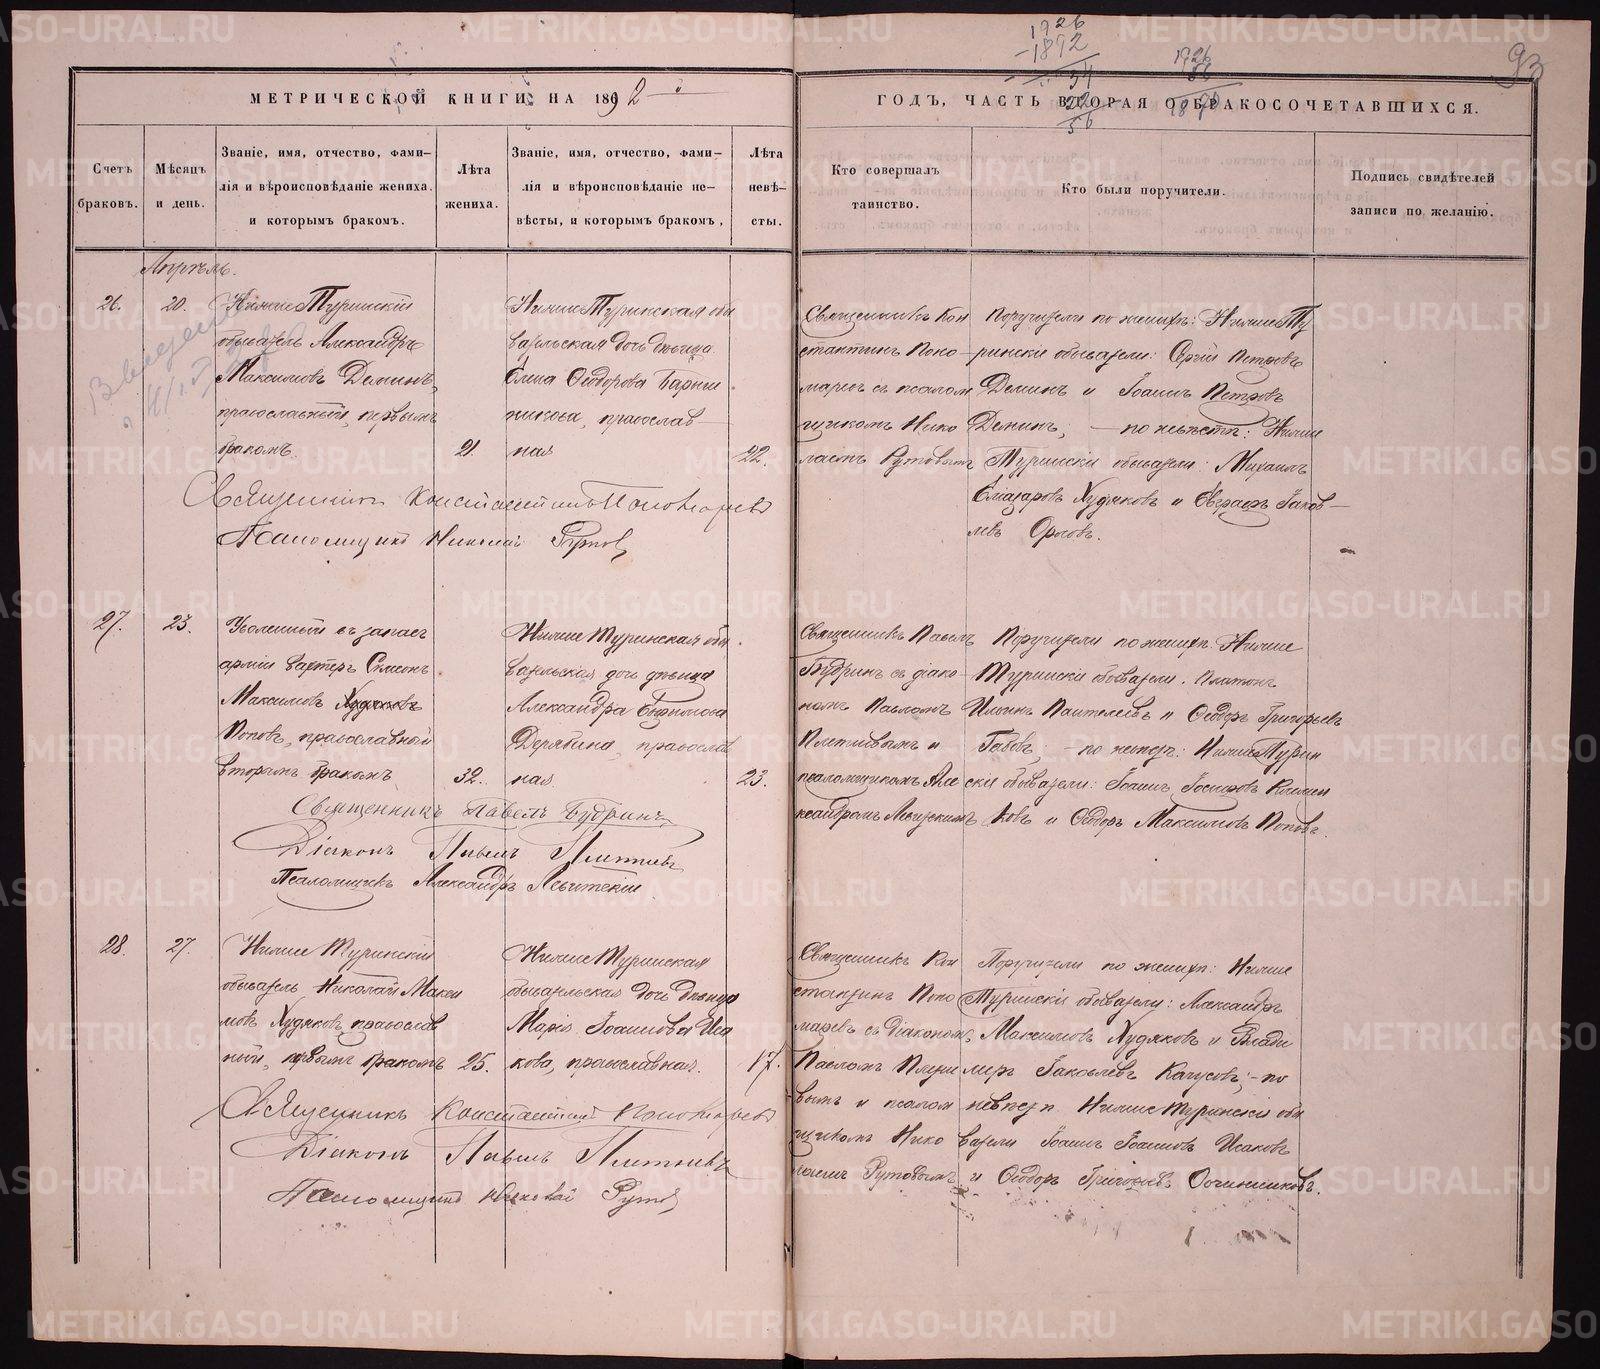 1926
-1892
34
22
56
1926
56
1870
93
МЕТРИЧЕСКОЙ КНИГИ НА 1892
ГОДЪ, ЧАСТЬ ВТОРАЯ О БРАКОСОЧЕТАВШИХСЯ.
Счетъ
браковъ.
Мѣсяцъ
и день.
Званіе, имя, отчество, фами–
лія и вѣроисповѣданіе жениха.
и которымъ бракомъ.
Лѣта
жениха.
Званіе, имя, отчество, фами–
лія и вѣроисповѣданіе не–
вѣсты, и которымъ бракомъ,
Лѣта
невѣ–
сты.
Кто совершалъ
таинство.
Кто были поручители.
Подпись свидѣтелей
записи по желанію.
Апрѣль.
26.
20.
Нижне Туринскій
обыватель Александръ
Максимовъ Деминъ,
православный, первымъ
бракомъ.
21.
Нижне Туринская обы
вательская дочь дѣвица
Елена Ѳеодорова
православ–
ная
22.
Священникъ Кон
стантинъ Поно–
маревъ съ псалом
щикомъ Нико
лаемъ Рутовымъ
Поручители по женихѣ: Нижне Ту
ринскіе обыватели: Сергій Петровъ
Деминъ и Іоаннъ Петровъ
Деминъ; – по невѣстѣ: Нижне
Туринскіе обыватели: Михаилъ
Еліазаровъ Худяковъ и Евграфъ Іаков–
левъ Орловъ.
Священникъ Константинъ Пономаревъ
Псаломщикъ Николай Рутовъ
27.
23.
Уволенный въ запасъ
арміи вахтеръ Симеонъ
Максимовъ Худяковъ
Поповъ, православный
вторымъ бракомъ
32.
Нижне Туринская обы
вательская дочь дѣвица
Александра Евфимова
Дерябина, православ
ная.
23.
Священникъ Павелъ
Будринъ съ діако–
номъ Павломъ
Плетневымъ и
псаломщикомъ Але
ксандромъ Левитскимъ
Поручители по женихѣ: Нижне
Туринскіе обыватели: Платонъ
Пантелеевъ и Ѳеодоръ Григорьевъ
– по невѣстѣ: Нижне Турин
скіе обыватели: Іоаннъ Іосифовъ Клими
ковъ и Ѳеодоръ Максимовъ Поповъ.
Священникъ Павелъ Будринъ
Діаконъ Павелъ Плетневъ
Псаломщикъ Александръ Левитскій
28.
27.
Нижне Туринскій
обыватель Николай Макси
мовъ Худяковъ, православ
ный, первымъ бракомъ
25.
Нижне Туринская
обывательская дочь дѣвица
Марія Іоаннова Иса
кова, православная.
17.
Священникъ Кон
стантинъ Поно
маревъ съ діакономъ
Павломъ Плетне
вымъ и псалом
щикомъ Нико
лаемъ Рутовымъ
Поручители по женихѣ: Нижне
Туринскіе обыватели: Александръ
Максимовъ Худяковъ и Влади
миръ Іаковлевъ – по
невѣстѣ Нижне Туринскіе обы
ватели Іоаннъ Іоанновъ Исаковъ
и Ѳеодоръ Григорьевъ Овчинниковъ.
Священникъ Константинъ Пономаревъ
Діаконъ Павелъ Плетневъ
Псаломщикъ Николай Рутовъ
METRIKI.GASO-URAL.RU